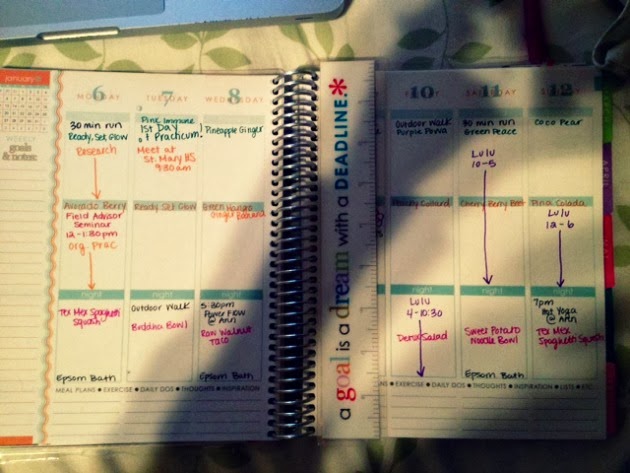 january
goals
& notes:
6
MONDAY
30 min run
Ready, Set Glow
Research
Avocado Berry
Field Advisor
Seminar
12-1:30pm
org. Prac
night
Tex Mex Spaghetti
Squash
Epsom Bath
7
TUESDAY
Pink Immune
1st Day
of Practicum!
Meet at
St. Mary HS
9:30am
Ready Set Glow
night
Outdoor Walk
Buddha Bowl
8
WEDNESDAY
Pineapple Ginger
Green Mango
Ginger
night
5:30pm
Power Flow
@ Ann
Raw Walnut
Taco
Epsom Bath
MEAL PLANS • EXERCISE • DAILY DOS • THOUGHTS • INSPIRATION
a goal is a dream with a DEADLINE.*
10
Outdoor Walk
Purple Powa
Collard
night
Lulu
4-10:30
Salad
11
SATURDAY
30 min run
Green Peace
Lulu
10-5
Cherry Berry Beet
night
Sweet Potato
Noodle Bowl
Epsom Bath
12
SUNDAY
Coco Pear
Pina Colada
Lulu
12-6
night
7pm
Hot Yoga
@ Ann
Tex Mex
Spaghetti Squash
EXERCISE • DAILY DOS • THOUGHTS • INSPIRATION • LISTS • ETC
APRIL
MAY